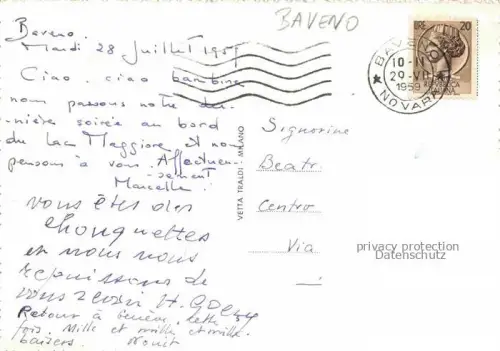 BAVENO
Baveno.
Mardi 28 Juillet 1959
Ciao, ciao bambine
nous passons notre der-
nière soirée au bord
du Lac Maggiore et nous
pensons à vous. Affectueu-
sement
Marcelle.
vous êtes des
chouquettes
et nous nous
réjouissons de
vous revoir H.
Retour à Genève cette
fois. Mille et mille et mille
baisers.
VETTA TRALDI - MILANO
20
BAVENO
10-
29-VII
1959
NOVARA
Signorine
Beatr.
Centro
Via
privacy protection
Datenschutz